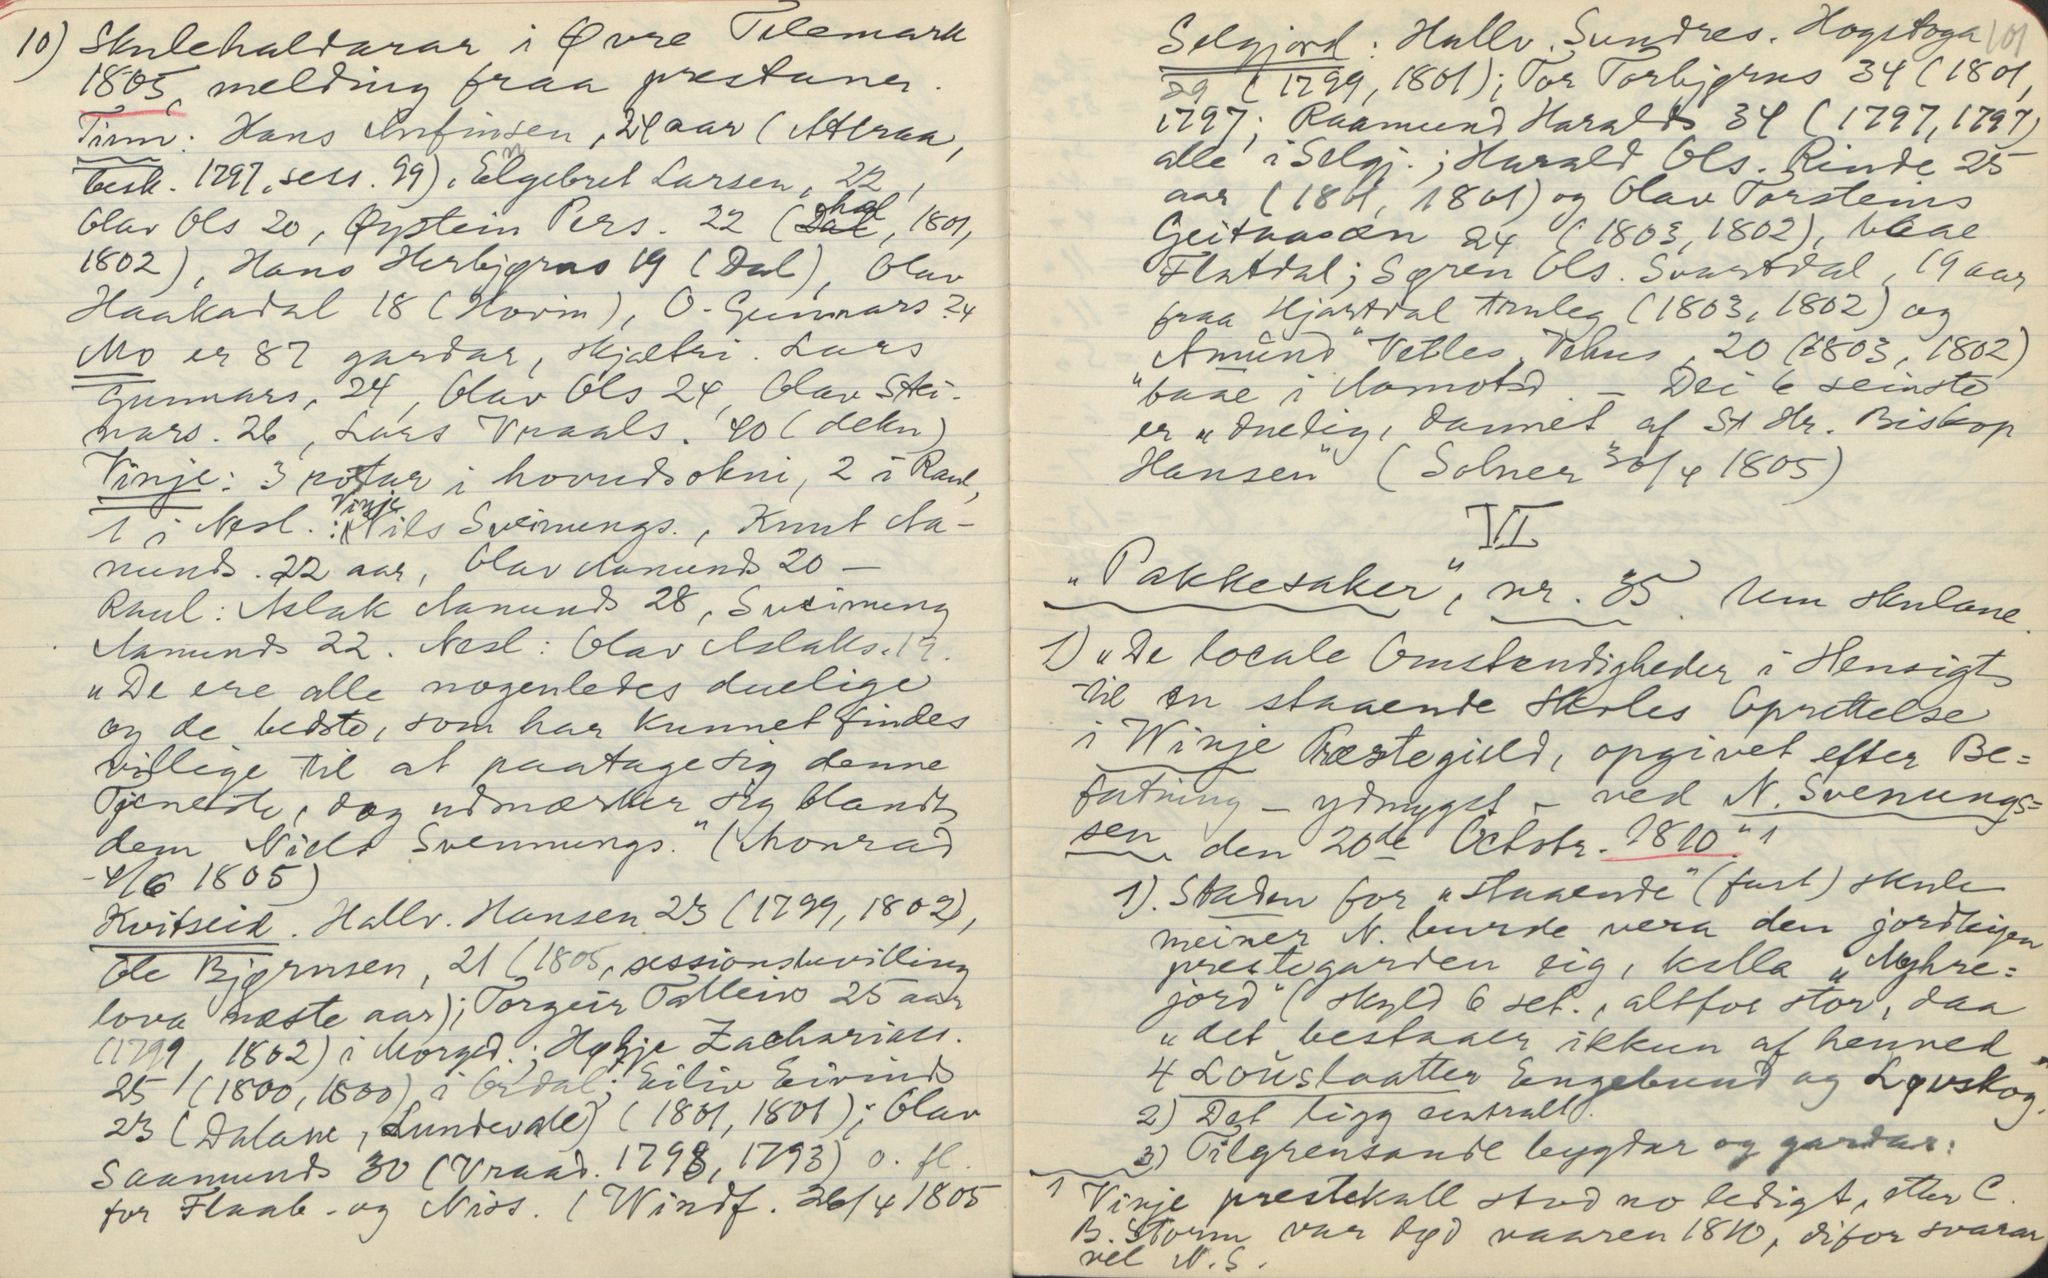 10) Skulehaldarar i Øvre Telemark
1805, melding fraa prestane.
Tinn: Hans Arnfinsen, 24 aar (Attraa,
besk. 1797, sess. 99), Engebret Larsen, 22,
Olav Ols 20, Øystein Pers. 22 (Dal, 1801,
1802), Hans Herbjørns 19 (Dal), Olav
Haakadal 18 (Hovin), O. Gunnars 24
Mo er 87 gardar, skjætri. Lars
Gunnars, 24, Olav Ols 24, Olav Stei-
nars. 26, Lars Vraals. 40 (dekn)
Vinje: 3 rotar i hovudsokni, 2 i Raul,
1 i Nesl. : Vinje Nils Sveinungs., Knut Aa-
munds. 22 aar, Olav Aamunds 20 —
Raul: Aslak Aamunds 28, Sveinung
Aamunds 22. Nesl: Olav Aslaks. 19.
„De ere alle nogenledes duelige
og de bedste, som har kunnet findes
villige til at paatage sig denne
Tjeneste, dog udmærker sig blandt
dem Niels Svennungs." (Thonrad
4/6 1805)
Kvitseid. Hallv. Hansen 23 (1799, 1802),
Ole Bjørnsen, 21 (1805, sessionsbevilling
lova næste aar); Torgeir Talleivs 25 aar
(1799, 1802) i Morged.; Høljje Zachariass.
25 (1800, 1800) i Ordal; Eiliv Eivinds
23 (Dalane, Sundevale) (1801, 1801); Olav
Saamunds 30 (Vraad. 1798, 1793) o. fl.
for Flaab- og Niss. (Windf. 26/4 1805
Selgjord: Hallv. Sundres. Hogstoga 101
29 (1799, 1801); Tor Torbjørns 34 (1801,
1797; Raamund Haralds 34 (1797, 1797)
alle i Selgj.; Harald Ols. Rinde 25
aar (1801, 1801) og Olav Torsteins
Geitaasen 24 (1803, 1802), baae
Flatdal; Søren Ols. Svartdal, 19 aar
fraa Hjartdal truleg (1803, 1802) og
„Amund" Vetles. Vehus, 20 (1803, 1802)
„baae i Aamotsd. — Dei 6 seinste
er „duelig, dannet af St Hr. Biskop
Hansen" (Solner 30/4 1805)
VI
„Pakkesaker", nr. 35. Um skulane.
1) „De locale Omstændigheder i Hensigt
til en staaende Skoles Oprettelse
i Winje Præstegield, opgivet efter Be=
fatning — ydmygst — ved N. Svenungs=
sen den 20de Octobr. 1810." 1
1). Staden for „staaende" (fast) skule
meiner N. burde vera den jordleigen
prestegarden eig, kalla „Myhre=
jord" (skyld 6 set., altfor stor, daa
„det bestaaer ikkun af henved
4 Louslaatter Engebund og Løvskog."
2) Det ligg sentralt.
3) Tilgrensande bygdar og gardar:
1 Vinje prestekall stod no ledigt, etter C.
B. Storm var død vaaren 1810, difor svarar
vel N. S.